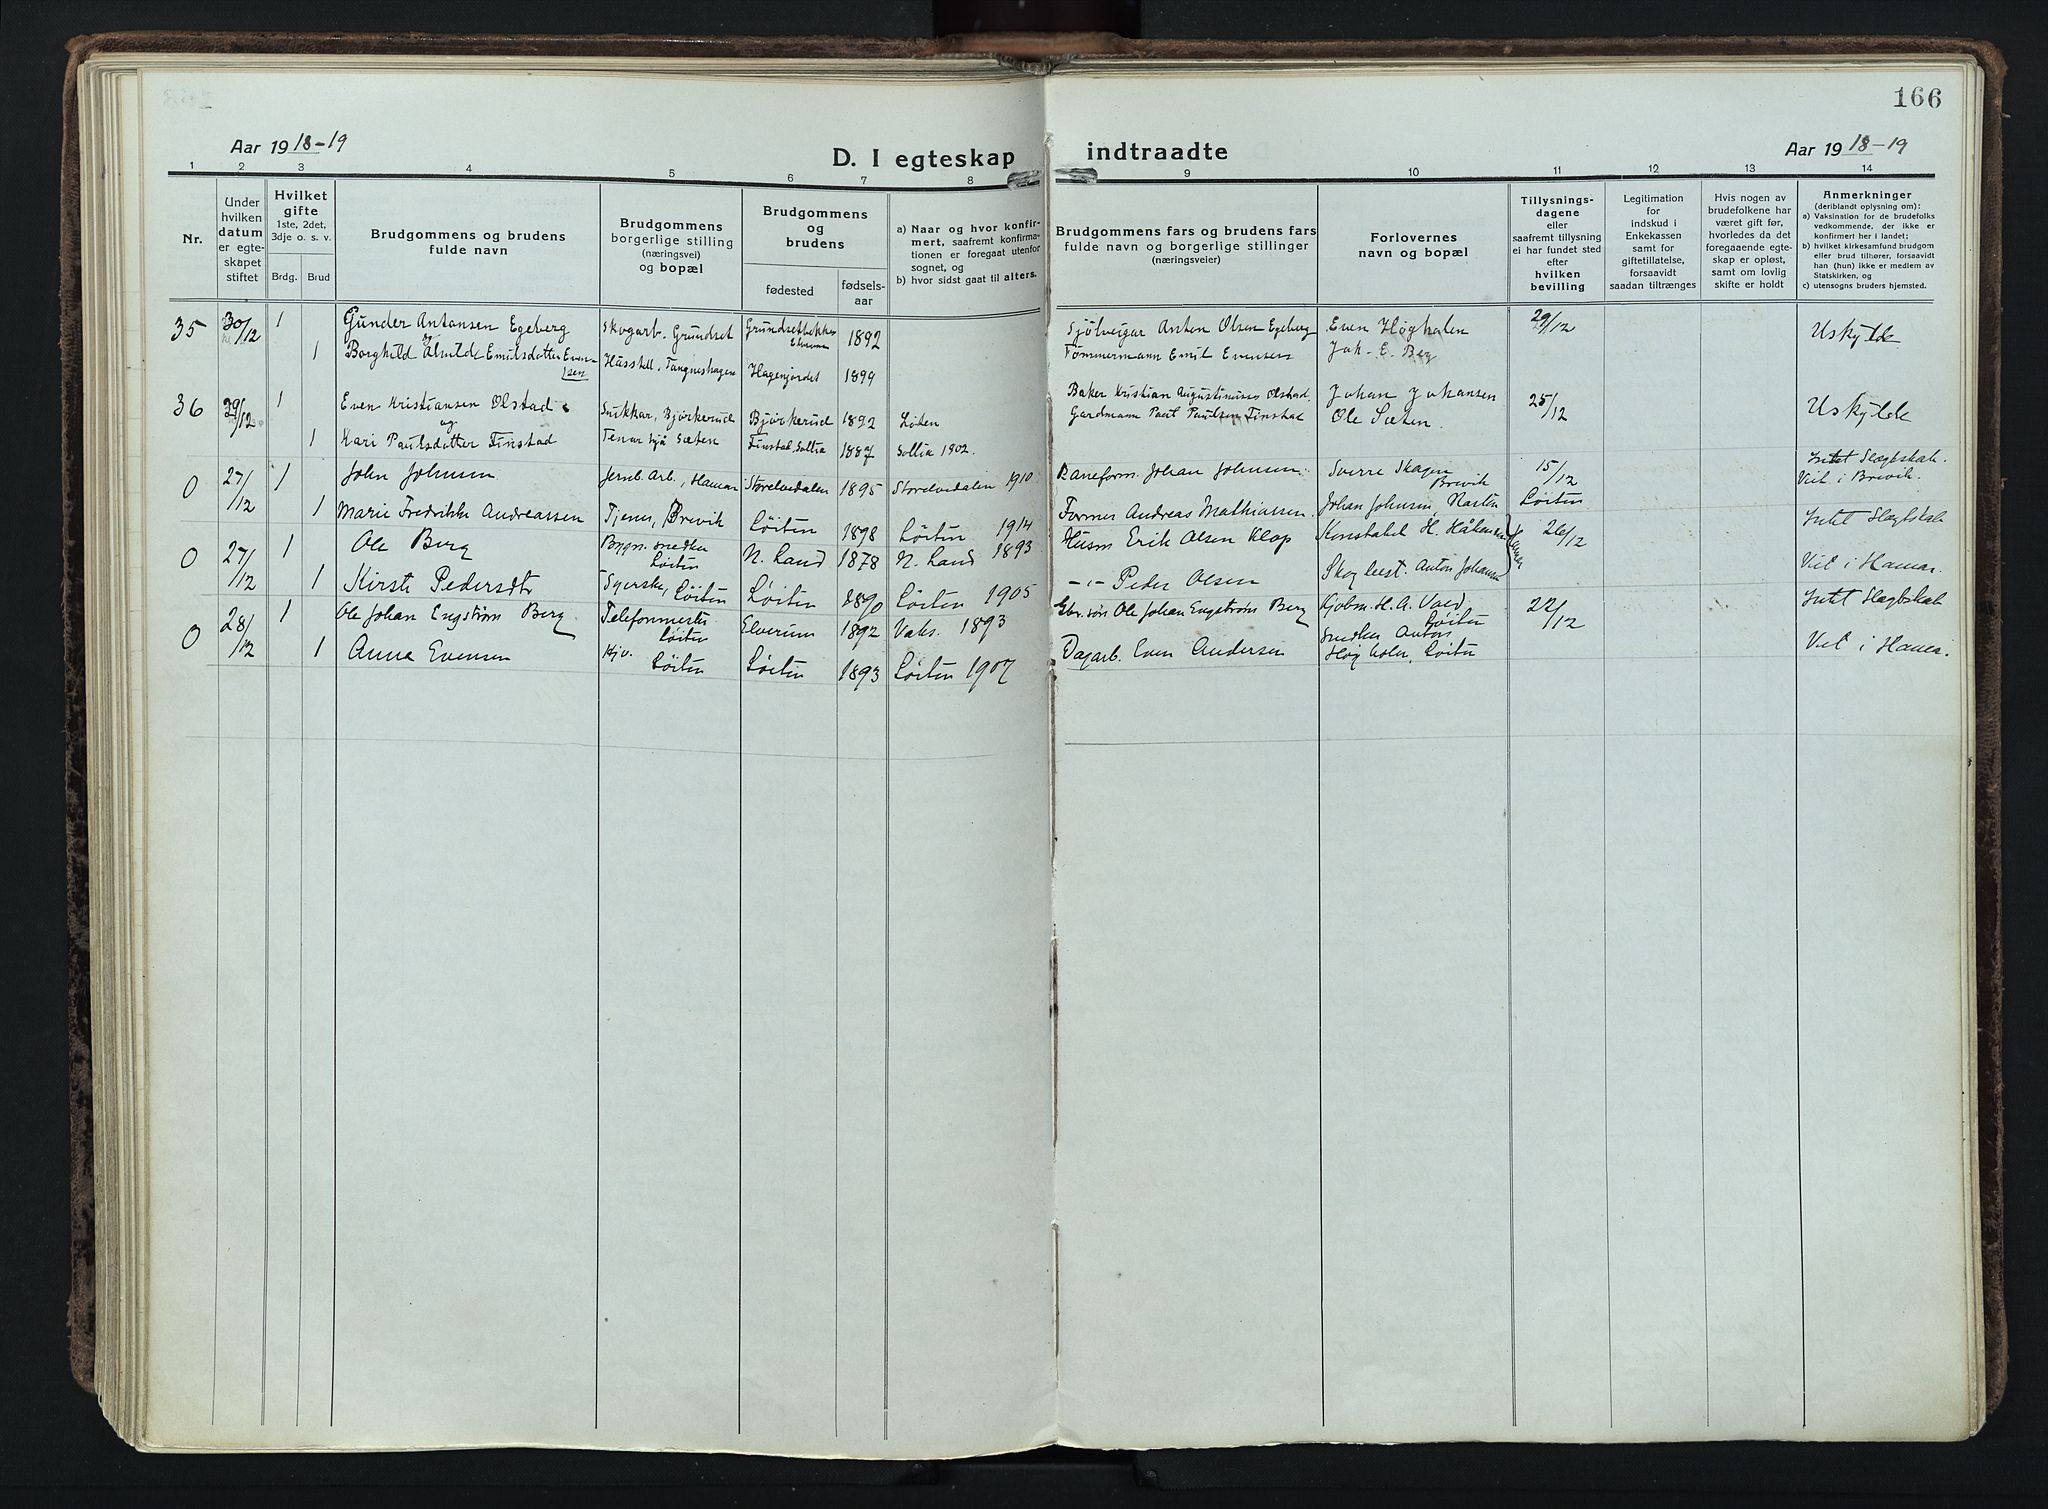 166
Aar 1918-19
D. I egteskap indtraadte
Aar 1918-19
1 2 3 4 5 6 7 8 9 10 11 12 13 14
Nr.
Under hvilken datum er egteskapet stiftet
Hvilket gifte 1ste, 2det, 3dje o. s. v.
Brdg. Brud
Brudgommens og brudens fulde navn
Brudgommens borgerlige stilling (næringsvei) og bopæl
Brudgommens og brudens
fødested fødselsaar
a) Naar og hvor konfirmert, saafremt konfirmationen er foregaat utenfor sognet, og
b) hvor sidst gaat til alters.
Brudgommens fars og brudens fars fulde navn og borgerlige stillinger (næringsveier)
Forlovernes navn og bopæl
Tillysningsdagene eller saafremt tillysning ei har fundet sted efter hvilken bevilling
Legitimation for indskud i Enkekassen samt for giftetillatelse, forsaavidt saadan tiltrænges
Hvis nogen av brudefolkene har været gift før, hvorledes da det foregaaende egteskap er opløst, samt om lovlig skifte er holdt
Anmerkninger (deriblandt oplysning om):
a) Vaksination for de brudefolks vedkommende, der ikke er konfirmert her i landet;
b) hvilket kirkesamfund brudgom eller brud tilhører, forsaavidt han (hun) ikke er medlem av Statskirken, og
c) utensogns bruders hjemsted.
35 30/12 1 Gunder Antonsen Egeberg Skogarb. Grundset Grundsetbekken Elverum 1892 Sjölveigar Anton Olsen Egeberg Even Høgholen 29/12 Uskylde
og
1 Borghild Alvilde Emilsdotter Evensen Husstell, Tangneshagen Hagenjordet 1899 Tømmermann Emil Evensen Joh. E. Berg
36 29/12 1 Even Kristiansen Olstad Snikkar, Bjørkerud Bjørkerud 1892 Løiten Baker Kristian Augustinusen Olstad Johan Johansen 25/12 Uskylde
og
1 Kari Paulsdotter Finstad Tenar hjå Sæten Finstad, Sollia 1887 Sollia 1902. Gardmann Paul Paulsen Finstad Ole Sæten.
0 27/12 1 John Johnsen Jernb. Arb., Hamar Storelvedalen 1895 Storelvedalen 1910 Baneform. Johan Johnsen Sverre Skagen Brevik 15/12 Intet Slægtskab.
1 Marie Fredrikke Andreassen Tjener, Brevik Løiten 1898 Løiten 1914 Former Andreas Mathiassen Johan Johnsen, Løiten Viet i Brevik.
0 27/12 1 Ole Berg Bygn. snedker Løiten N. Land 1878 N. Land 1893 Husm Erik Olsen Klop Konstabel H. Håkensen Hamar 26/12 Intet Slægtskab
1 Kirsti Pedersdtr Syerske, Løiten Løiten 1890 Løiten 1905 -"- Peder Olsen Skogbest. Anton Johansen Viet i Hamar.
0 28/12 1 Ole Johan Engstrøm Berg Telefonmester Løiten Elverum 1892 Vaks. 1893 Gbr. søn Ole Johan Engstrøm Berg Kjøbm. H. A. Løiten 22/12 Intet Slægtskab
1 Anna Evensen Løiten Løiten 1893 Løiten 1907 Dagarb. Even Andersen Snedker Anton Løiten Viet i Hamar.